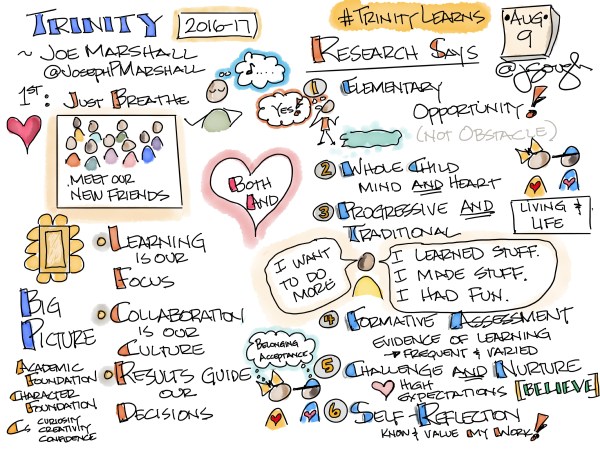 TRINITY
2016-17
~ JOE MARSHALL
@JOSEPHPMARSHALL
1ST: JUST BREATHE
MEET OUR
NEW FRIENDS
BIG
PICTURE
ACADEMIC
FOUNDATION
CHARACTER
FOUNDATION
CS CURIOSITY
CREATIVITY
CONFIDENCE
LEARNING
IS OUR
FOCUS
COLLABORATION
IS OUR
CULTURE
RESULTS GUIDE
OUR
DECISIONS
YES!
BOTH
AND
#TRINITYLEARNS
AUG
9
@jgough
RESEARCH SAYS
1 ELEMENTARY
OPPORTUNITY!
(NOT OBSTACLE)
2 WHOLE CHILD
MIND AND HEART
3 PROGRESSIVE AND
TRADITIONAL
LIVING &
LIFE
I WANT
TO DO
MORE
I LEARNED STUFF.
I MADE STUFF.
I HAD FUN.
4 FORMATIVE ASSESSMENT
EVIDENCE OF LEARNING
→ FREQUENT & VARIED
BELONGING
ACCEPTANCE
5 CHALLENGE AND NURTURE
HIGH
EXPECTATIONS
BELIEVE
6 SELF-REFLECTION
KNOW & VALUE MY WORK!